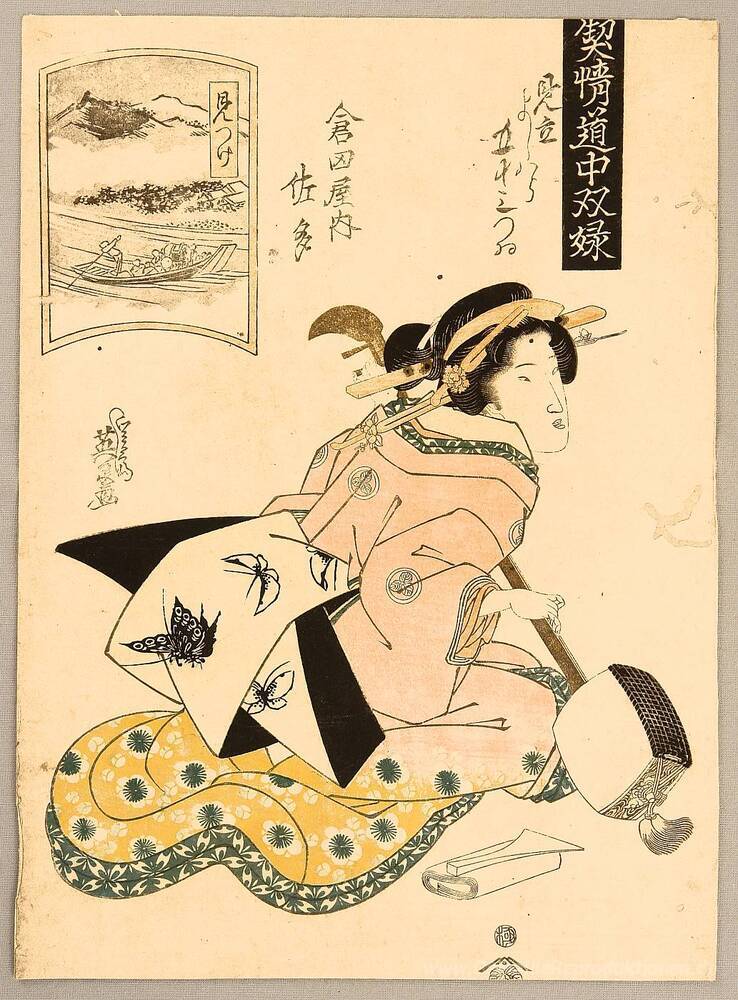 契情道中双娽
見立よしはら
五十三つゐ
倉田屋内
佐多
見つけ
英泉画
極